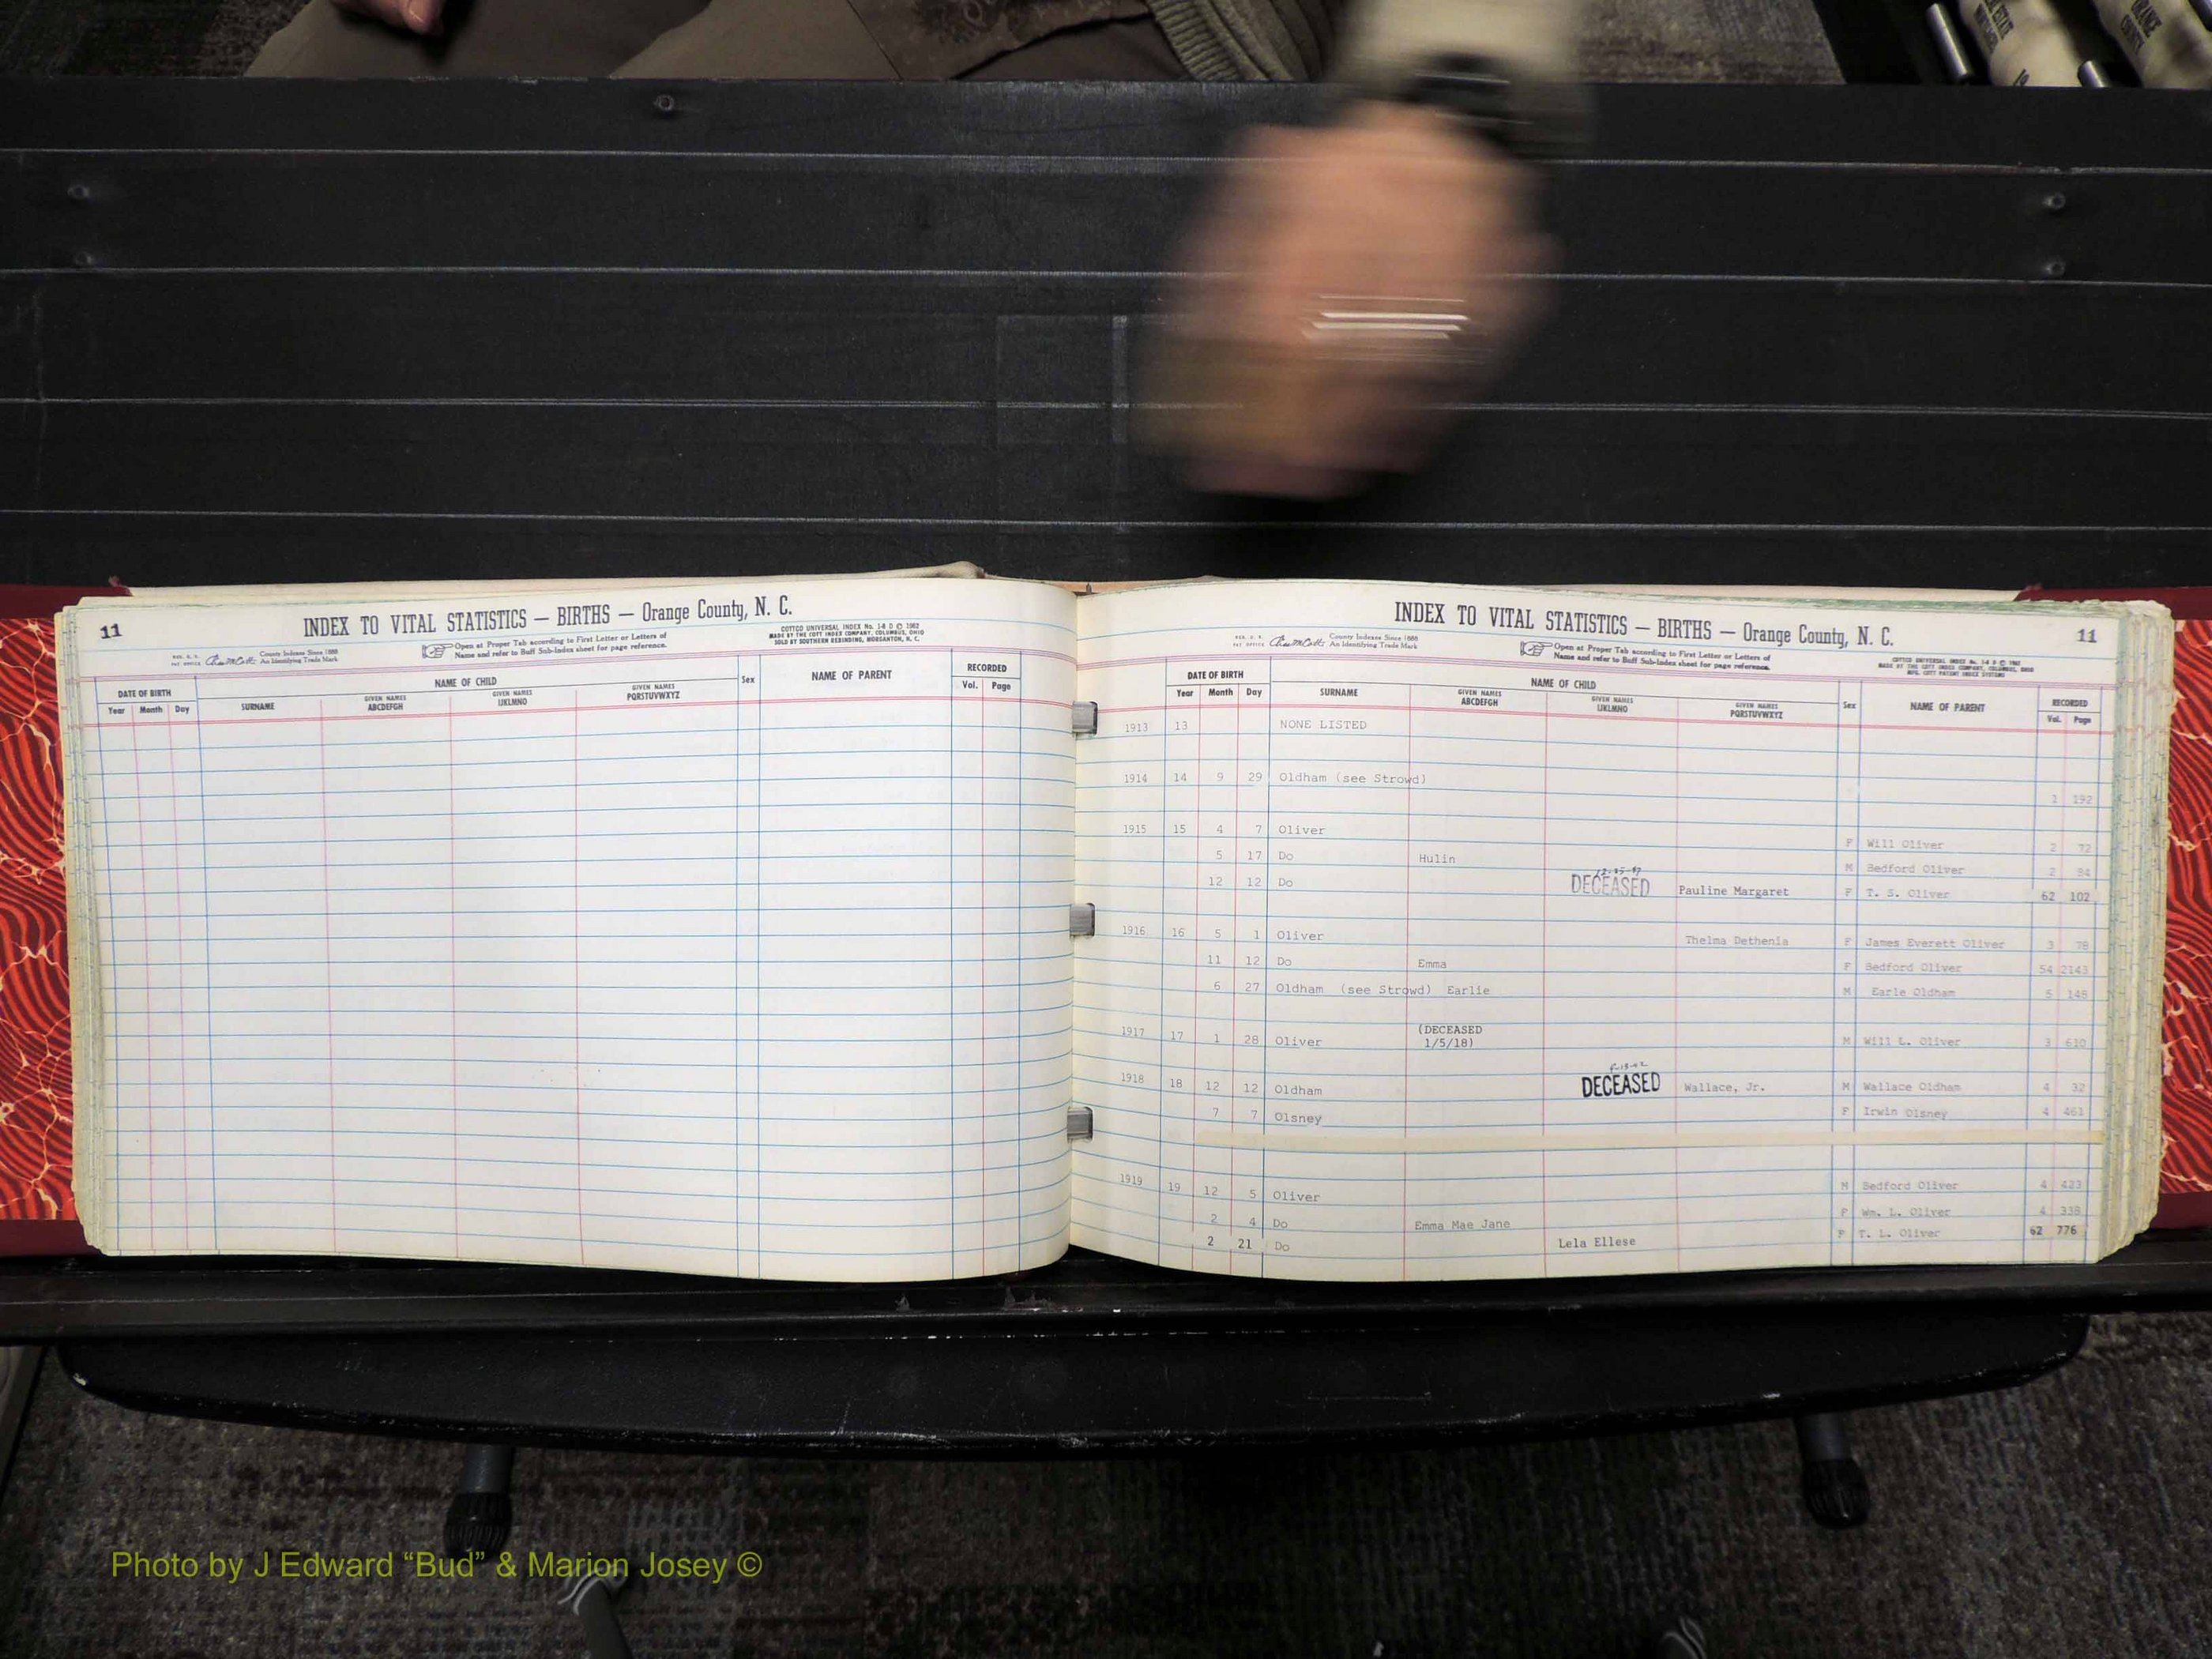 ORANGE COUNTY
11
INDEX TO VITAL STATISTICS — BIRTHS — Orange County, N. C.
County Indexes Since 1888
An Identifying Trade Mark
Open at Proper Tab according to First Letter or Letters of
Name and refer to Buff Sub-Index sheet for page reference.
COTTCO UNIVERSAL INDEX No. 1-8 D © 1962
MADE BY THE COTT INDEX COMPANY, COLUMBUS, OHIO
SOLD BY SOUTHERN REBINDING, MORGANTON, N. C.
DATE OF BIRTH NAME OF CHILD Sex NAME OF PARENT RECORDED
Year Month Day SURNAME GIVEN NAMES ABCDEFGH GIVEN NAMES IJKLMNO GIVEN NAMES PQRSTUVWXYZ Vol. Page
INDEX TO VITAL STATISTICS — BIRTHS — Orange County, N. C.
11
County Indexes Since 1888
An Identifying Trade Mark
Open at Proper Tab according to First Letter or Letters of
Name and refer to Buff Sub-Index sheet for page reference.
DATE OF BIRTH NAME OF CHILD Sex NAME OF PARENT RECORDED
Year Month Day SURNAME GIVEN NAMES ABCDEFGH GIVEN NAMES IJKLMNO GIVEN NAMES PQRSTUVWXYZ Vol. Page
1913 13 NONE LISTED
1914 14 9 29 Oldham (see Strowd)
192
1915 15 4 7 Oliver F Will Oliver 2 72
5 17 Do Hulin M Bedford Oliver 2 94
12 12 Do DECEASED Pauline Margaret F T. S. Oliver 62 102
1916 16 5 1 Oliver Thelma Dethenia F James Everett Oliver 3 78
11 12 Do Emma F Bedford Oliver 54 2143
6 27 Oldham (see Strowd) Earlie M Earle Oldham 5 146
1917 17 1 28 Oliver (DECEASED 1/5/18) M Will L. Oliver 3 610
1918 18 12 12 Oldham DECEASED Wallace, Jr. M Wallace Oldham 4 32
7 7 Olsney F Irwin Olsney 4 461
1919 19 12 5 Oliver M Bedford Oliver 4 423
2 4 Do Emma Mae Jane F Wm. L. Oliver 4 338
2 21 Do Lela Ellese F T. L. Oliver 62 776
Photo by J Edward “Bud” & Marion Josey ©